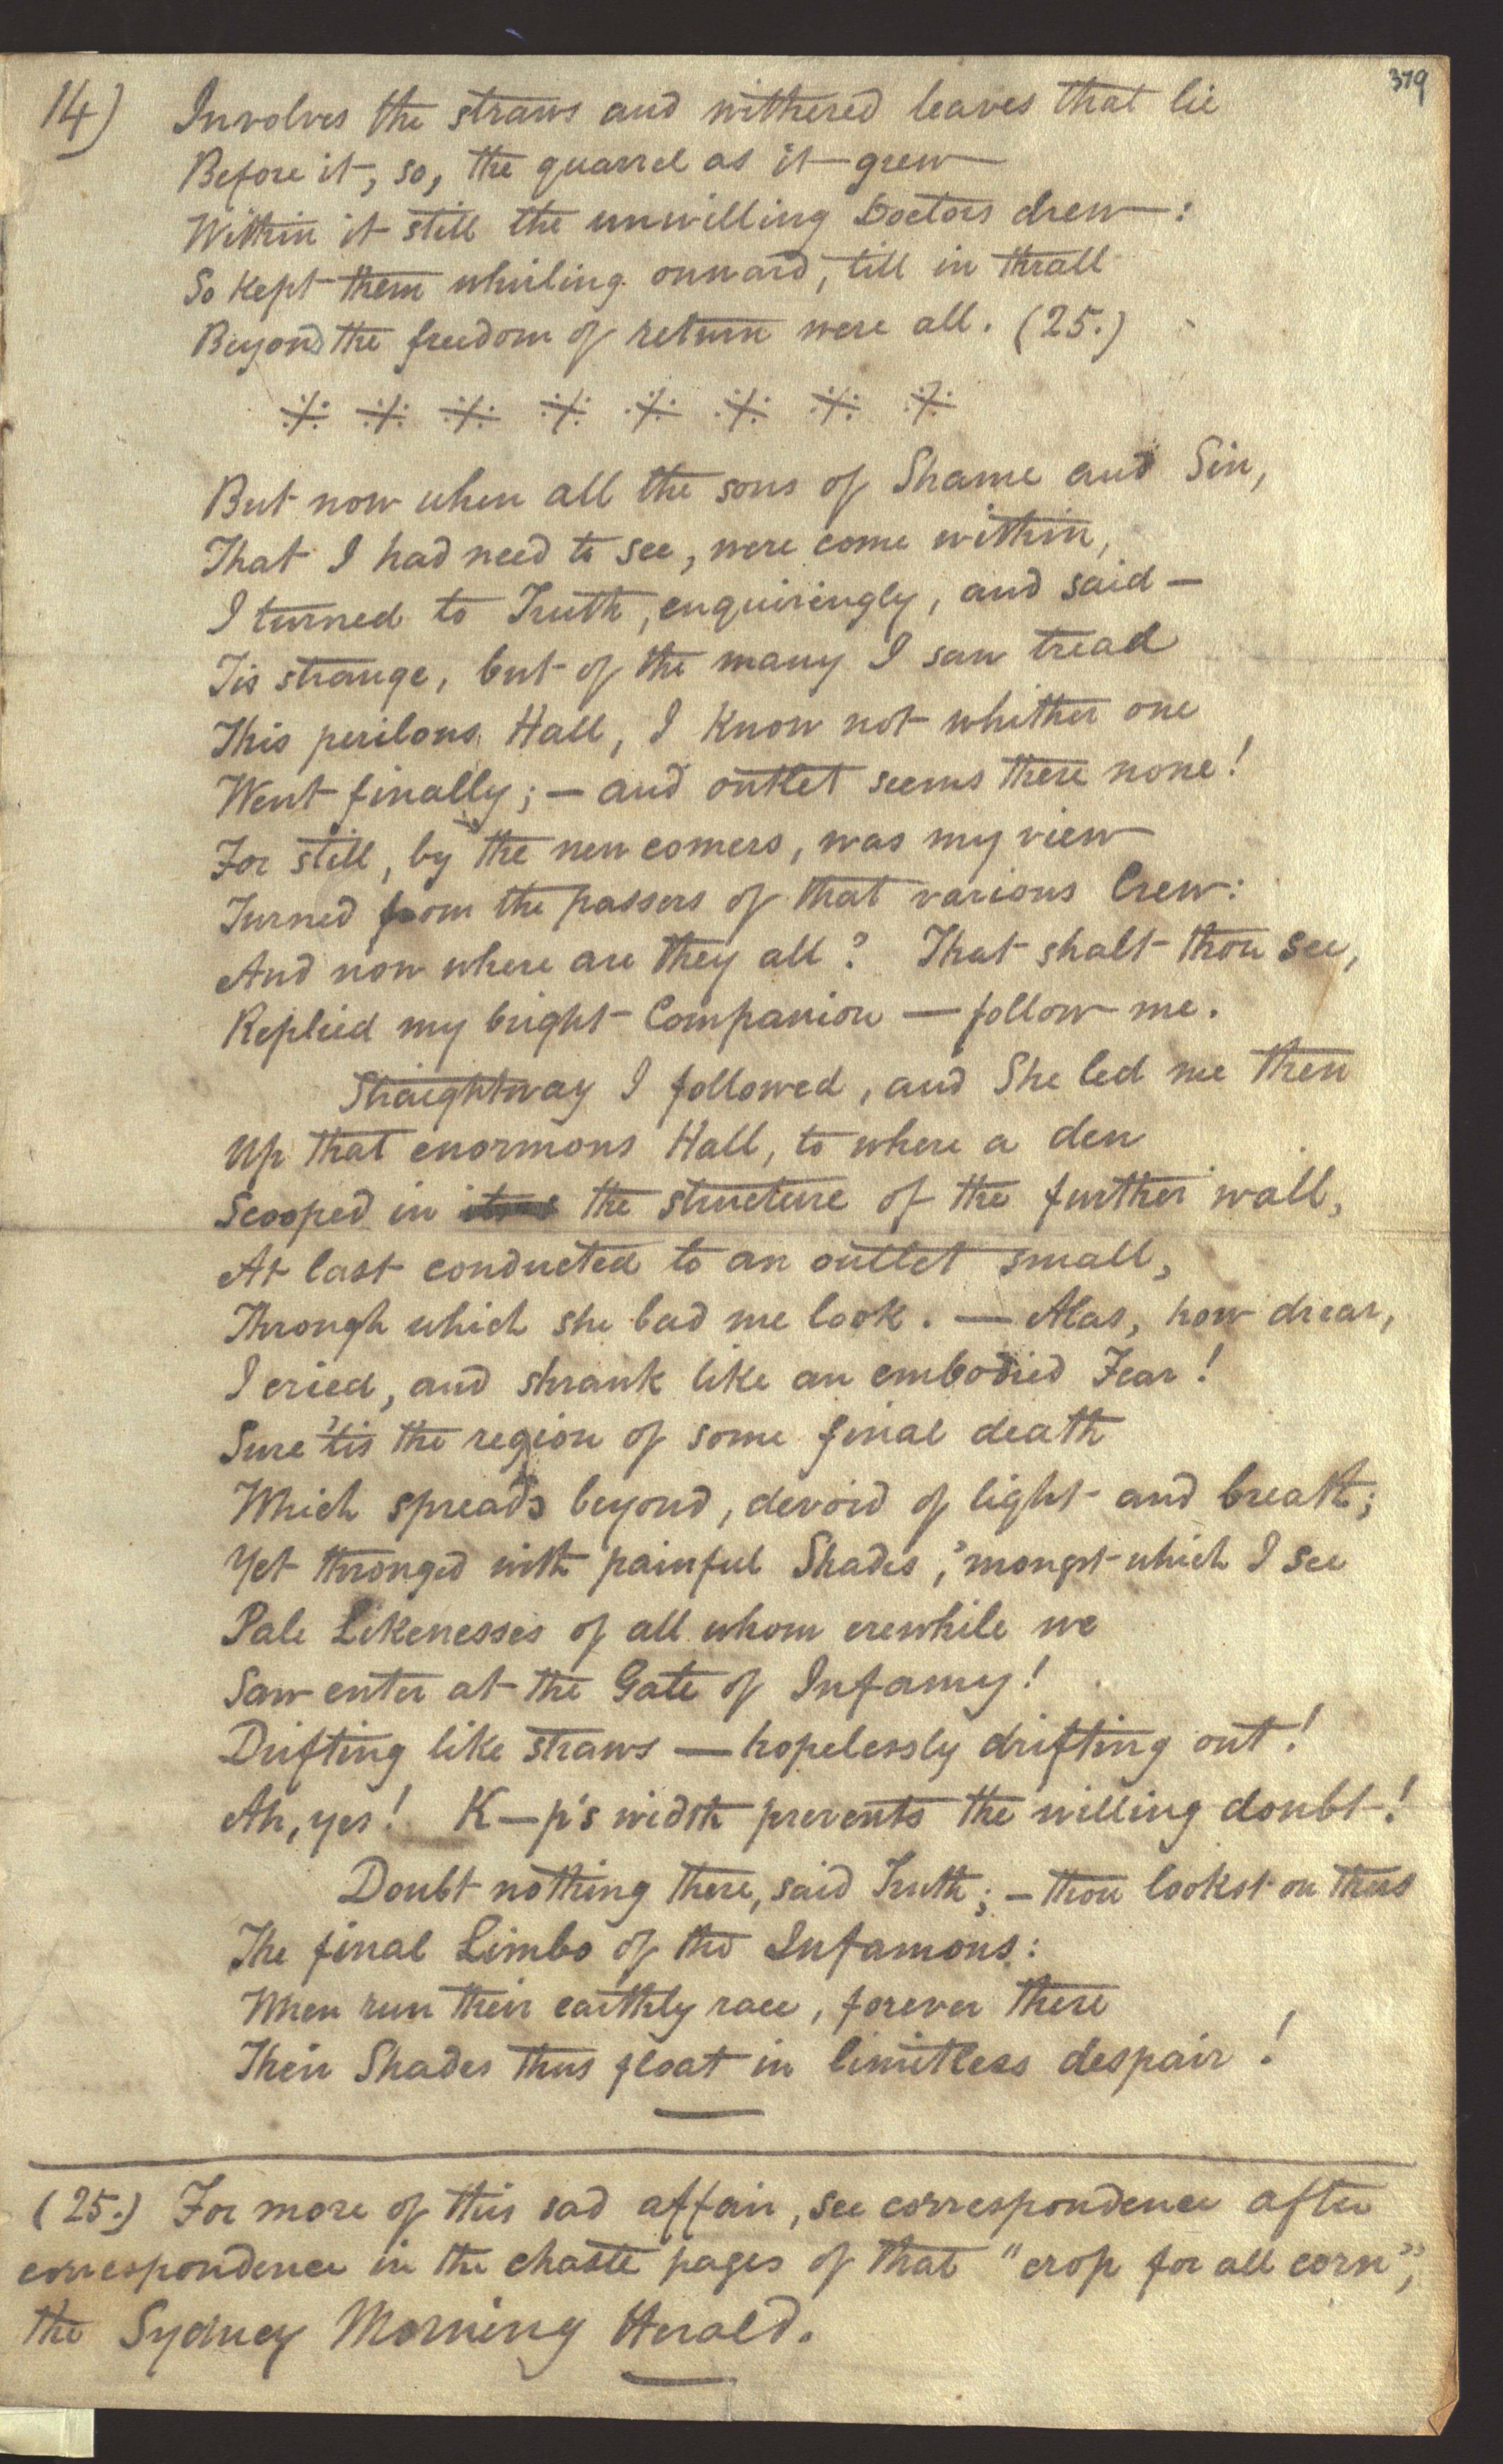 379
14) Involves the straws and withered leaves that lie
Before it, so, the quarrel as it grew
Within it still the unwilling Doctors drew:
So kept them whirling onward, till in thrall
Beyond the freedom of return were all. (25.)
※ ※ ※ ※ ※ ※ ※ ※
But now when all the sons of Shame and Sin,
That I had need to see, were come within,
I turned to Truth, enquiringly, and said —
Tis strange, but of the many I saw tread
This perilous Hall, I know not whither one
Went finally; — and outlet seems there none!
For still, by the new comers, was my view
Turned from the passers of that various Crew:
And now where are they all? That shalt thou see,
Replied my bright Companion — follow me.
Straightway I followed, and She led me then
Up that enormous Hall, to where a den
Scooped in the structure of the further wall,
At last conducted to an outlet small,
Through which she bad me look. — Alas, how drear,
I cried, and shrank like an embodied Fear!
Sure 'tis the region of some final death
Which spreads beyond, devoid of light and breath;
Yet thronged with painful Shades, 'mongst which I see
Pale Likenesses of all whom erewhile we
Saw enter at the Gate of Infamy!
Drifting like straws — hopelessly drifting out!
Ah, yes! K—p's width prevents the willing doubt!
Doubt nothing there, said Truth; — thou lookst on thus
The final Limbo of the Infamous:
When run their earthly race, forever there
Their Shades thus float in limitless despair!
(25.) For more of this sad affair, see correspondence after
correspondence in the chaste pages of that "crop for all corn",
the Sydney Morning Herald.